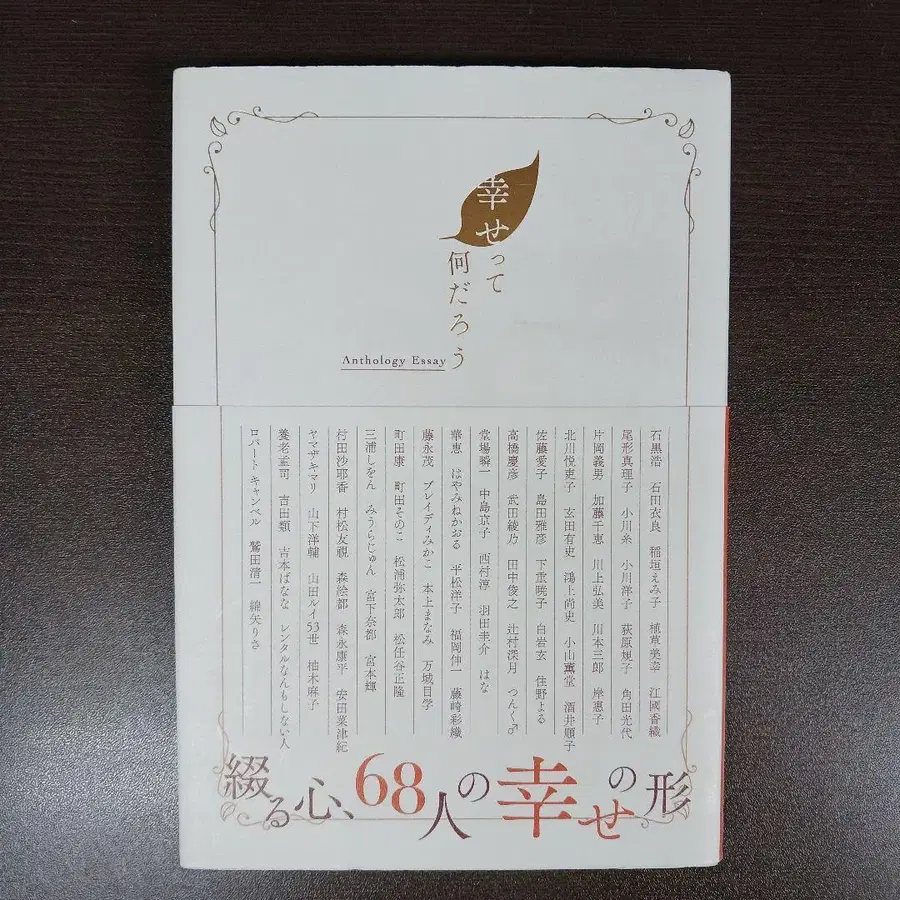 幸せって
何だろう
Anthology Essay
石黒浩 石田衣良 稲垣えみ子 植草美幸 江國香織
尾形真理子 小川糸 小川洋子 荻原規子 角田光代
片岡義男 加藤千恵 川上弘美 川本三郎 岸惠子
北川悦吏子 玄田有史 鴻上尚史 小山薫堂 酒井順子
佐藤愛子 島田雅彦 下重暁子 白岩玄 住野よる
高橋慶彦 武田綾乃 田中俊之 辻村深月 つんく♂
堂場瞬一 中島京子 西村淳 羽田圭介 はな
華恵 はやみねかおる 平松洋子 福岡伸一 藤崎彩織
藤永茂 ブレイディみかこ 本上まなみ 万城目学
町田康 町田そのこ 松浦弥太郎 松任谷正隆
三浦しをん みうらじゅん 宮下奈都 宮本輝
村田沙耶香 村松友視 森絵都 森永康平 安田菜津紀
ヤマザキマリ 山下洋輔 山田ルイ53世 柚木麻子
養老孟司 吉田類 吉本ばなな レンタルなんもしない人
ロバート キャンベル 鷲田清一 綿矢りさ
綴る心、68人の幸せの形